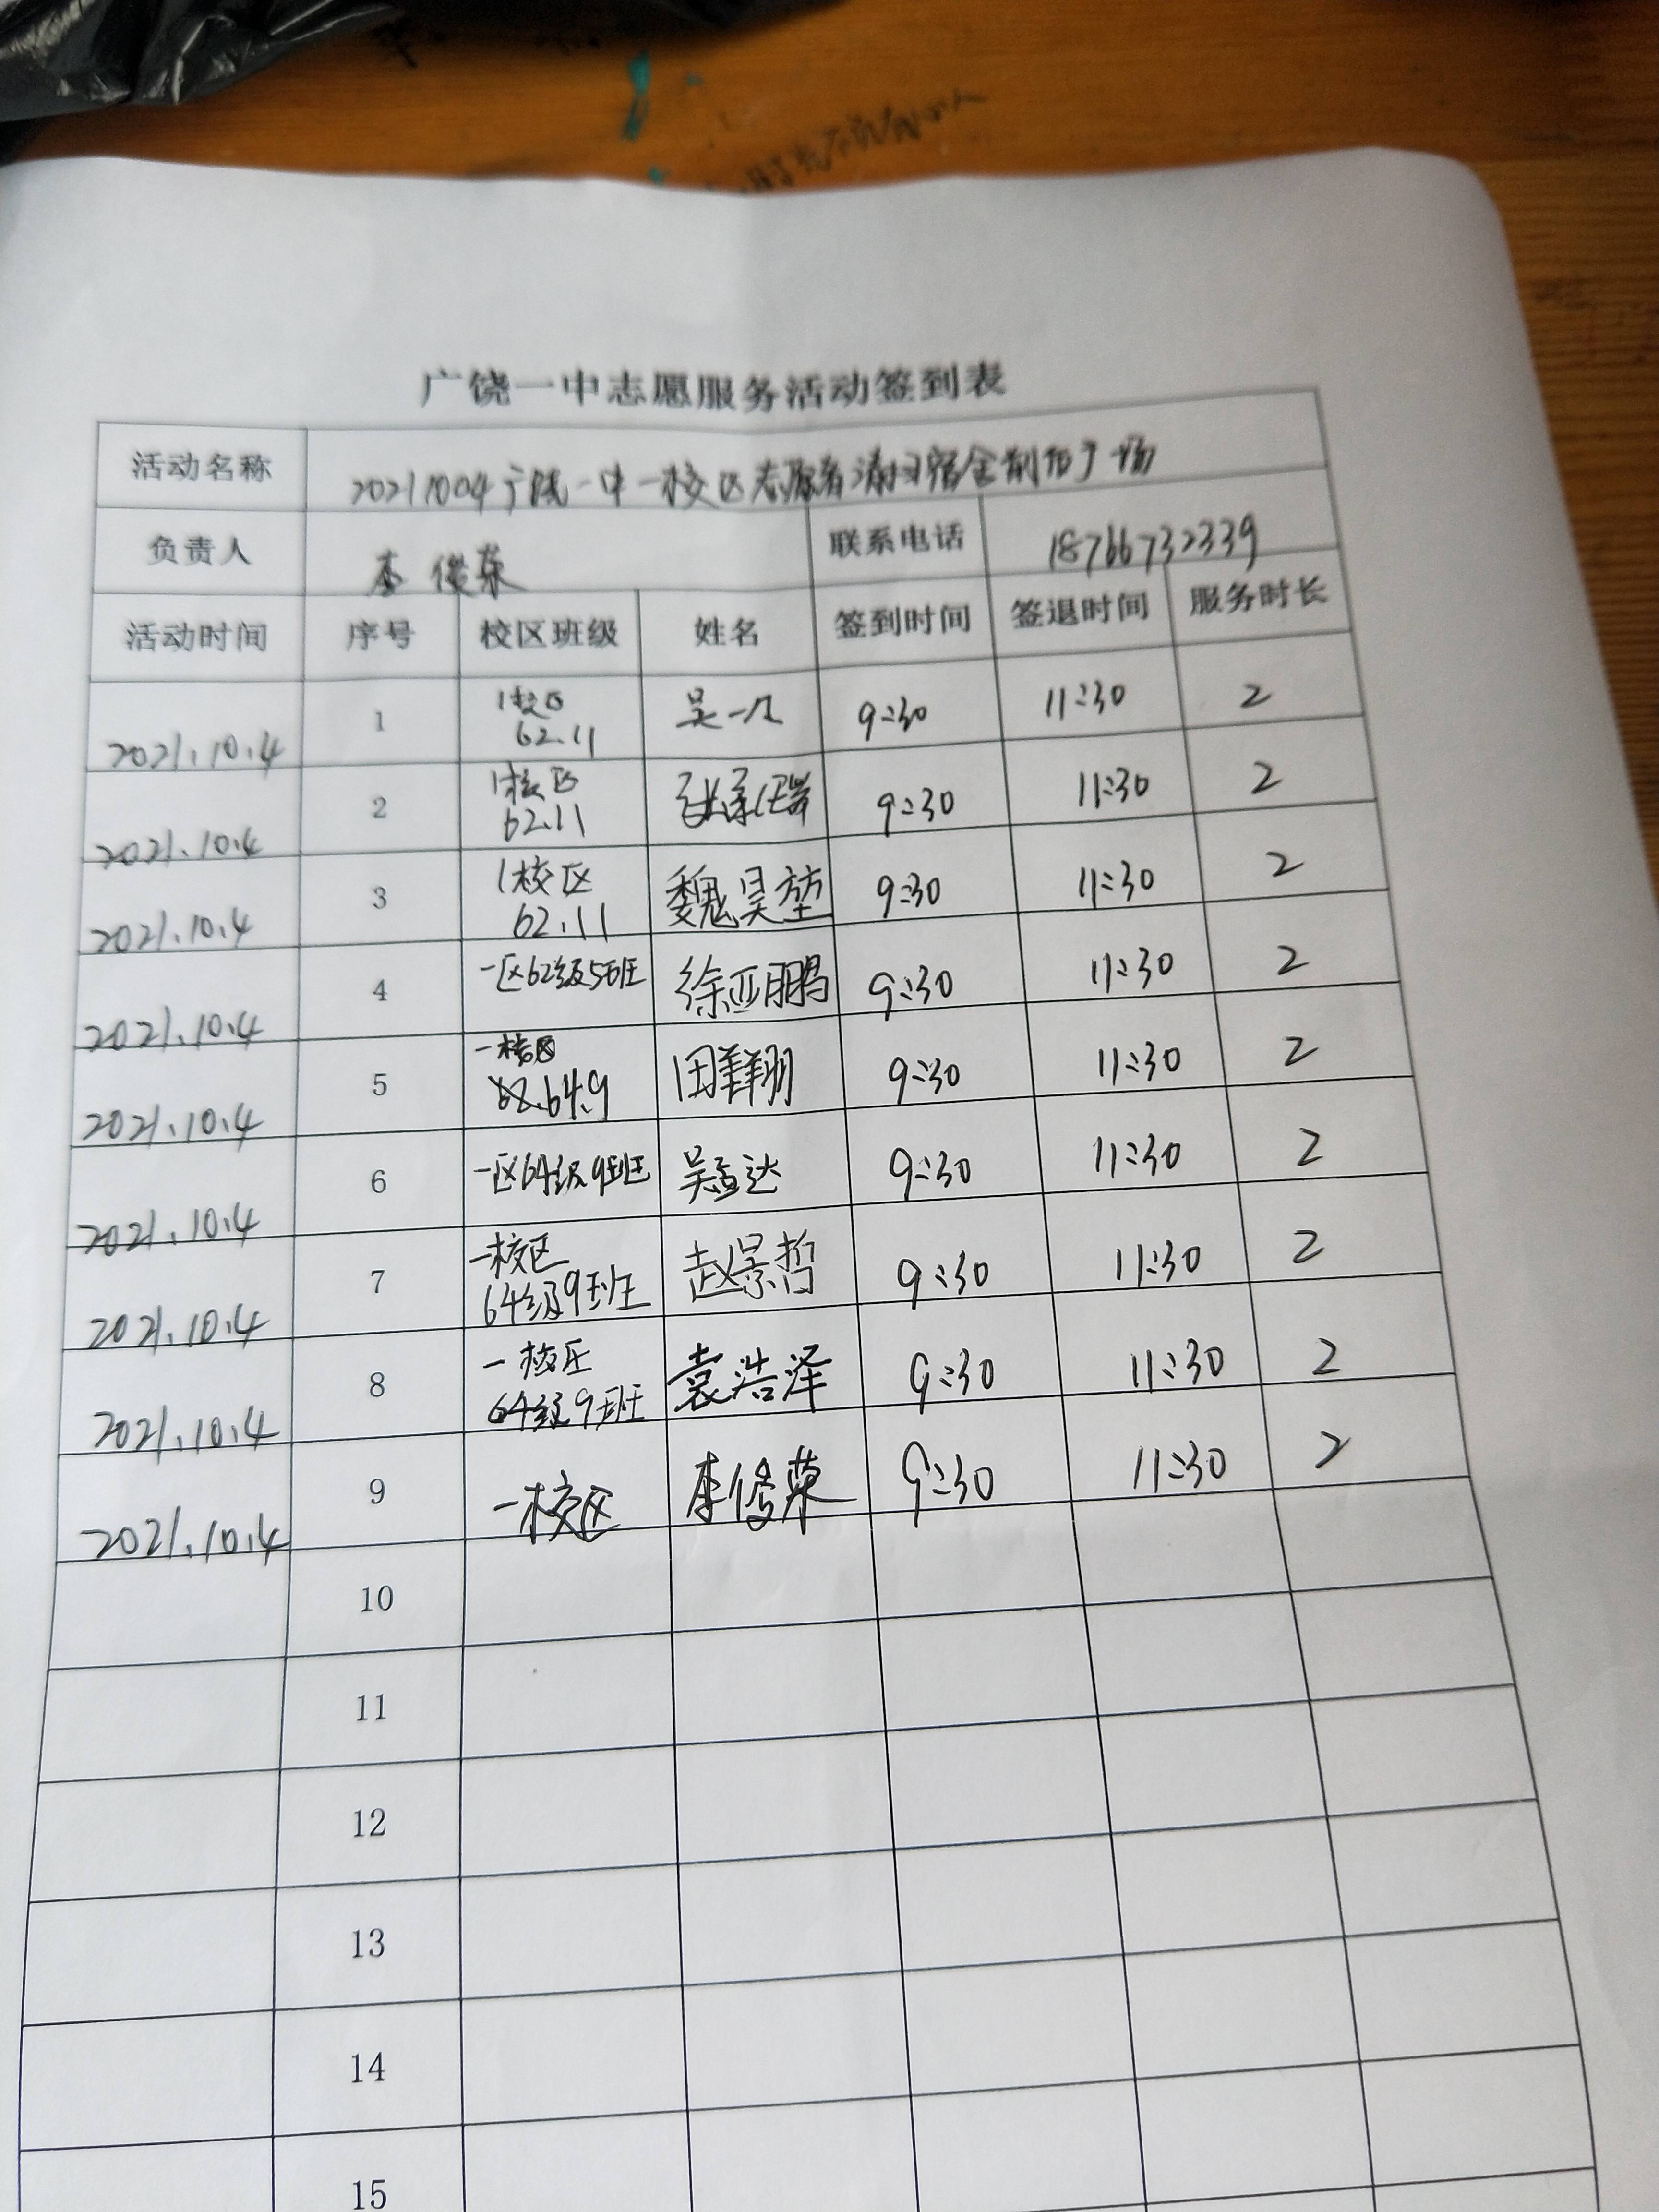 广饶一中志愿服务活动签到表
活动名称 20211004广饶一中一校区志愿者清扫宿舍
负责人 李俊荣 联系电话 18766732339
活动时间 序号 校区班级 姓名 签到时间 签退时间 服务时长
2021.10.4 1 1校区 62.11 吴一凡 9:30 11:30 2
2021.10.4 2 1校区 62.11 9:30 11:30 2
2021.10.4 3 1校区 62.11 魏昊堃 9:30 11:30 2
2021.10.4 4 一区62级5班 徐亚鹏 9:30 11:30 2
2021.10.4 5 一校区 64.9 田翔 9:30 11:30 2
2021.10.4 6 一区64级9班 吴孟达 9:30 11:30 2
2021.10.4 7 一校区 64级9班 赵景哲 9:30 11:30 2
2021.10.4 8 一校区 64级9班 袁浩泽 9:30 11:30 2
2021.10.4 9 一校区 李俊荣 9:30 11:30 2
10
11
12
13
14
15